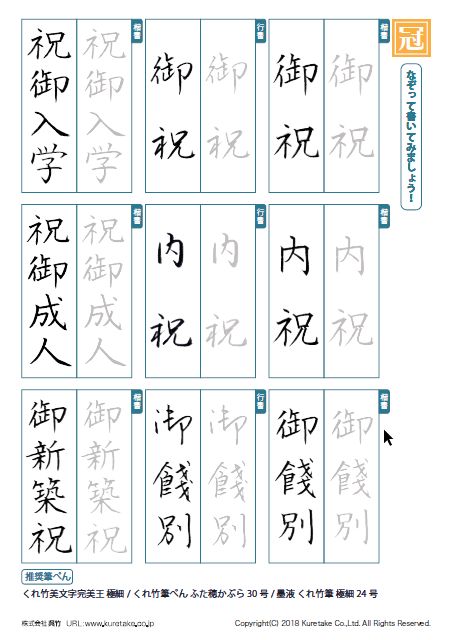 冠
なぞって書いてみましょう！
楷書
御祝
御祝
行書
御祝
御祝
楷書
祝御入学
祝御入学
楷書
内祝
内祝
行書
内祝
内祝
楷書
祝御成人
祝御成人
楷書
御餞別
御餞別
行書
御餞別
御餞別
楷書
御新築祝
御新築祝
推奨筆ぺん
くれ竹美文字完美王 極細 / くれ竹筆ぺん ふた穂かぶら 30 号 / 墨液 くれ竹筆 極細 24 号
株式会社 呉竹 URL:www.kuretake.co.jp Copyright(C) 2018 Kuretake Co.,Ltd. All Rights Reserved.